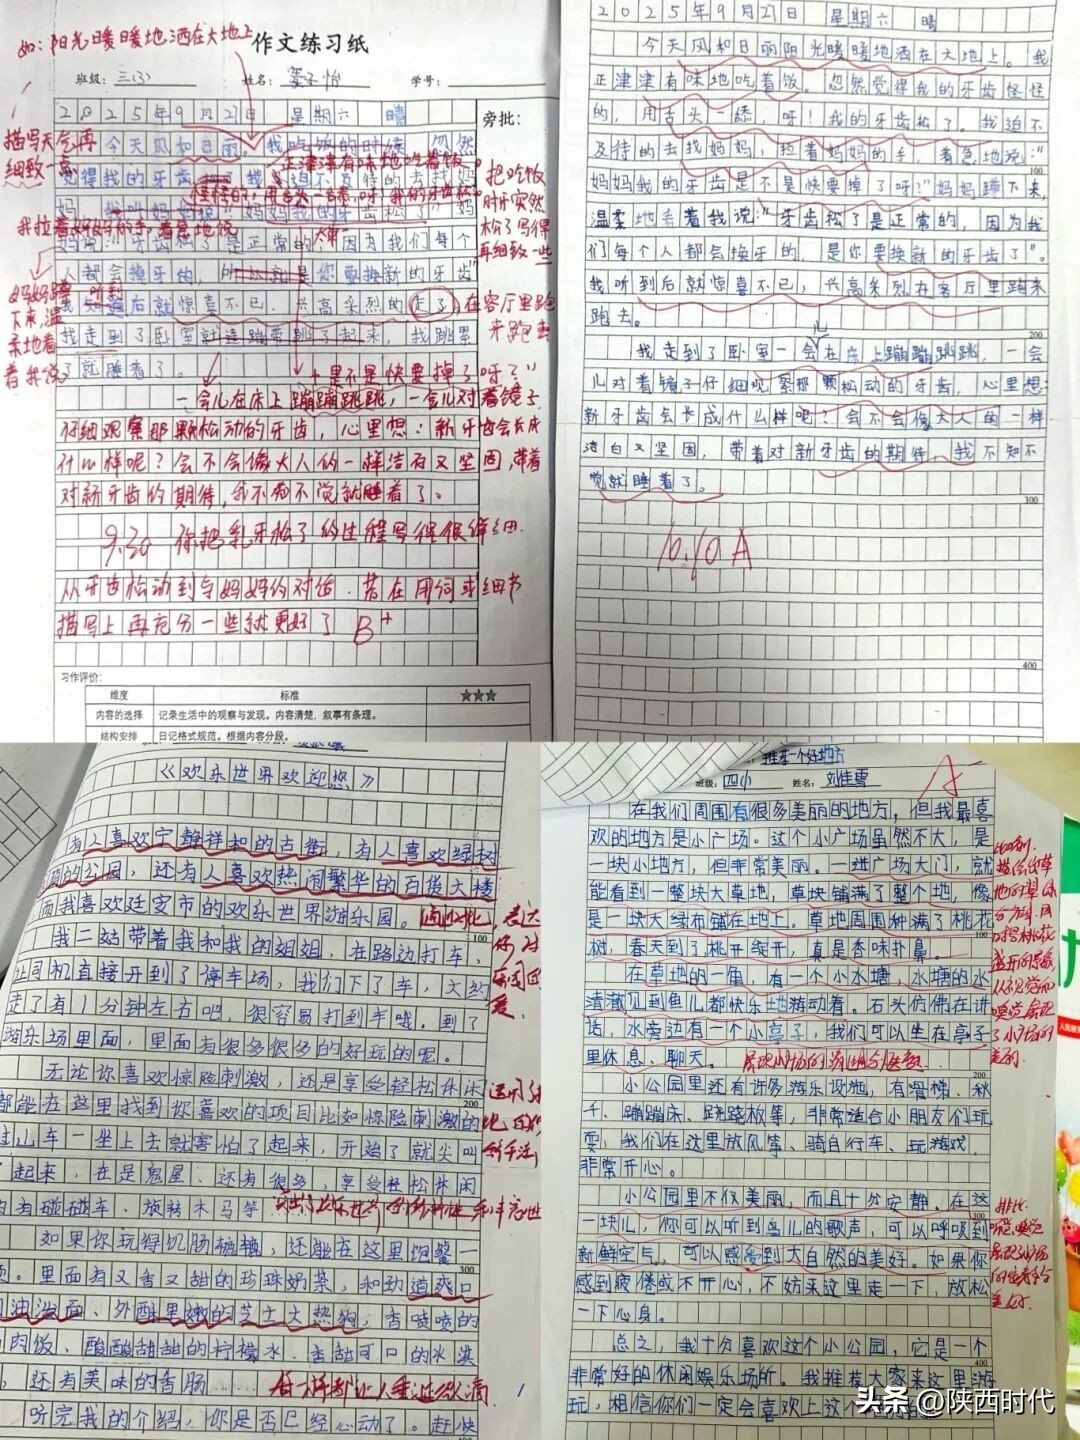 如：阳光暖暖地洒在大地上
作文练习纸
班级：三(3)
姓名：
学号：
2025年9月21日 星期六 晴
旁批：
描写天气再
细致一点
今天风和日丽。我吃饭的时候，忽然
正津津有味地吃着饭
觉得我的牙齿
怪怪的，用舌头一舔，呀！我的牙齿松
把吃饭
时牙突然
松了写得
再细致一些
妈妈我的牙齿松了”妈
我拉着妈妈的手，着急地说
牙齿松了是正常的，因为我们每个
人都会换牙的，所以就是你要换新的牙齿”
妈妈蹲
下来，温
柔地看
着我说
我知道后就惊喜不已，兴高采烈的走了，在客厅里跑
来跑去
我走到了卧室就连蹦带跳了起来，我跳累
了就睡着了。
是不是快要掉了呀？”
一会儿在床上蹦蹦跳跳，一会儿对着镜子
仔细观察那颗松动的牙齿，心里想：新牙齿会长成
什么样呢？会不会像大人的一样洁白又坚固，带着
对新牙齿的期待，我不知不觉就睡着了。
9.30 你把乳牙松了的过程写得很详细.
从牙齿松动到与妈妈的对话.若在用词或细节
描写上再充分一些就更好了 B+
习作评价：
维度 标准 ★★★
内容的选择 记录生活中的观察与发现。内容清楚，叙事有条理。
结构安排 日记格式规范。根据内容分段。
2025年9月21日 星期六 晴
今天风和日丽阳光暖暖地洒在大地上。我
正津津有味地吃着饭。忽然觉得我的牙齿怪怪
的，用舌头一舔，呀！我的牙齿松了。我迫不
及待的去找妈妈，拉着妈妈的手，着急地说：“
妈妈我的牙齿是不是快要掉了呀？”妈妈蹲下来，
温柔地看着我说：“牙齿松了是正常的，因为我
们每个人都会换牙的，是你要换新的牙齿了”。
我听到后就惊喜不已，兴高采烈在客厅里跑来
跑去。
200
我走到了卧室一会儿在床上蹦蹦跳跳，一会
儿对着镜子仔细观察那颗松动的牙齿，心里想：
新牙齿会长成什么样呢？会不会像大人的一样
洁白又坚固，带着对新牙齿的期待，我不知不
觉就睡着了。
300
10.10 A
400
《欢乐世界欢迎您》
有人喜欢宁静祥和的古街，有人喜欢绿树
的公园，还有人喜欢热闹繁华的百货大楼
而我喜欢延安市的欢乐世界游乐园。
100
我二姑带着我和我的姐姐，在路边打车，
让司机直接开到了停车场，我们下了车，大约
走了有1分钟左右吧，很容易打到车哦。到了
游乐场里面，里面有很多很多的好玩的呢。
无论你喜欢惊险刺激，还是享受轻松休闲
200
都能在这里找到你喜欢的项目比如惊险刺激的
过山车一坐上去就害怕了起来，开始了就尖叫
了起来，在是鬼屋、还有很多，享受轻松休闲
的有碰碰车、旋转木马等
如果你玩得饥肠辘辘，还能在这里饱餐一
300
顿。里面有又香又甜的珍珠奶茶，和劲道爽口
的油泼面、外酥里嫩的芝士大热狗，香喷喷的
肉饭、酸酸甜甜的柠檬水、香甜可口的冰淇
，还有美味的香肠……
每一样都让人垂涎欲滴
听完我的介绍，你是否已经心动了。赶快
推荐一个好地方
班级：四(1)
姓名：刘佳雪
A-
在我们周围有很多美丽的地方，但我最喜
欢的地方是小广场。这个小广场虽然不大，是
一块小地方，但非常美丽。一进广场大门，就
能看到一整块大草地，草块铺满了整个地，像
是一块大绿布铺在地上。草地周围种满了桃花
树，春天到了桃开绽开，真是香味扑鼻。
在草地的一角，有一个小水塘，水塘的水
清澈见到鱼儿都快乐地游动着。石头仿佛在讲
话，水旁边有一个小亭子，我们可以坐在亭子
里休息、聊天。
200
小公园里还有许多游乐设施，有滑梯、秋
千、蹦蹦床、跷跷板等，非常适合小朋友们玩
耍，我们在这里放风筝、骑自行车、玩游戏，
非常开心。
小公园里不仅美丽，而且十分安静。在这
300
一块儿，你可以听到鸟儿的歌声，可以呼吸到
新鲜空气，可以感受到大自然的美好。如果你
感到疲倦或不开心，不妨来这里走一下，放松
一下心身。
总之，我十分喜欢这个小公园，它是一个
400
非常好的休闲娱乐场所。我推荐大家来这里游
玩，相信你们一定会喜欢上这个
头条 @陕西时代